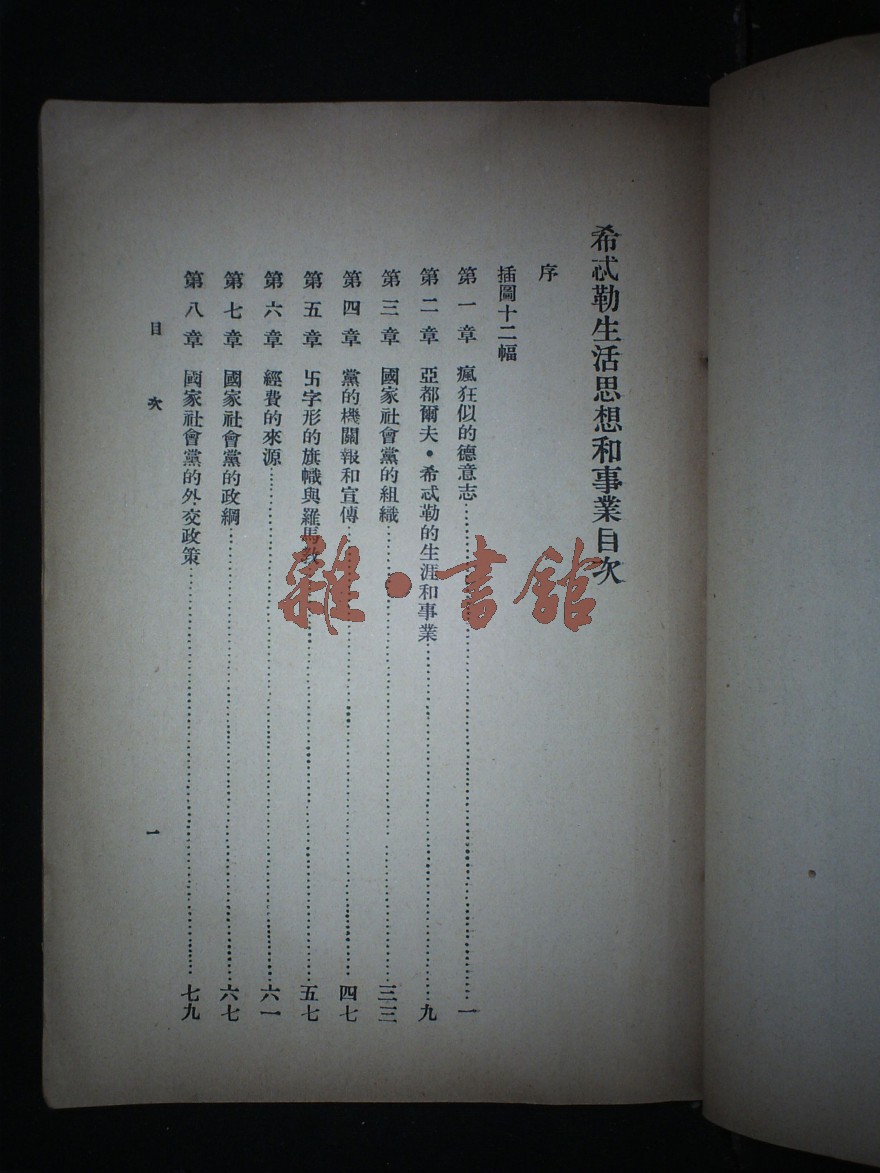 希忒勒生活思想和事業目次
序
插圖十二幅
第一章 瘋狂似的德意志……一
第二章 亞都爾夫•希忒勒的生涯和事業……九
第三章 國家社會黨的組織……三三
第四章 黨的機關報和宣傳……四七
第五章 卐字形的旗幟與羅馬教……五七
第六章 經費的來源……六一
第七章 國家社會黨的政綱……六七
第八章 國家社會黨的外交政策……七九
目次 一
雜•書館